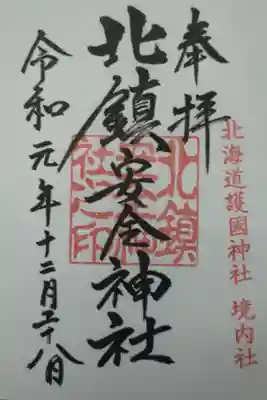 奉拝
北海道護國神社 境内社
北鎮安全神社
令和元年十二月二十八日